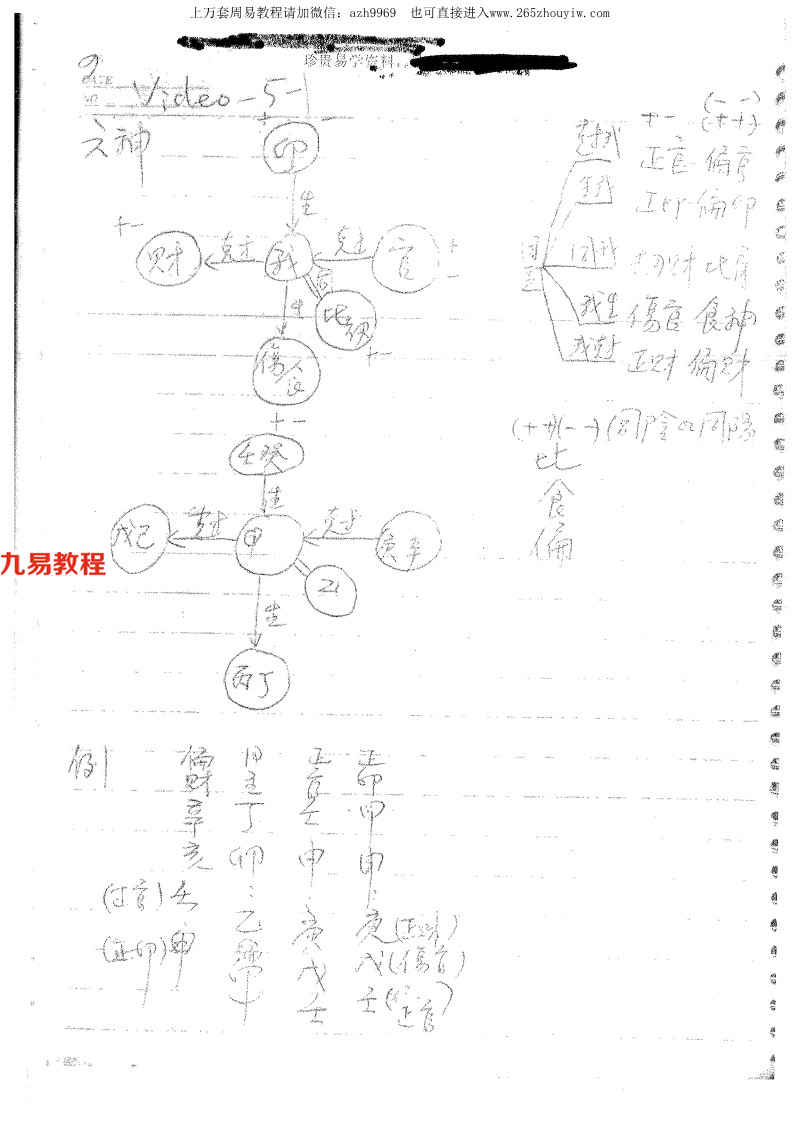 上万套周易教程请加微信：azh9969 也可直接进入www.265zhouyiw.com
珍贵易学资料
Video-5-
六神
印
生
财 克 我 克 官
同
生
比
傷
食
壬癸
生
戊己 克 甲 克 庚辛
乙
生
丙丁
+- (--)(++)
克我 正官 偏官
生我 正印 偏印
同我 劫财 比肩
日主
我生 傷官 食神
我克 正财 偏财
(++)(--)(同陰or同陽
比
食
偏
九易教程
例
偏财 日主 正官 正印
辛 丁 壬 甲
亥 卯 申 申
(正官) 壬 乙 庚 庚(正财)
(正印) 甲 戊 戊(傷官)
壬 壬(正官)